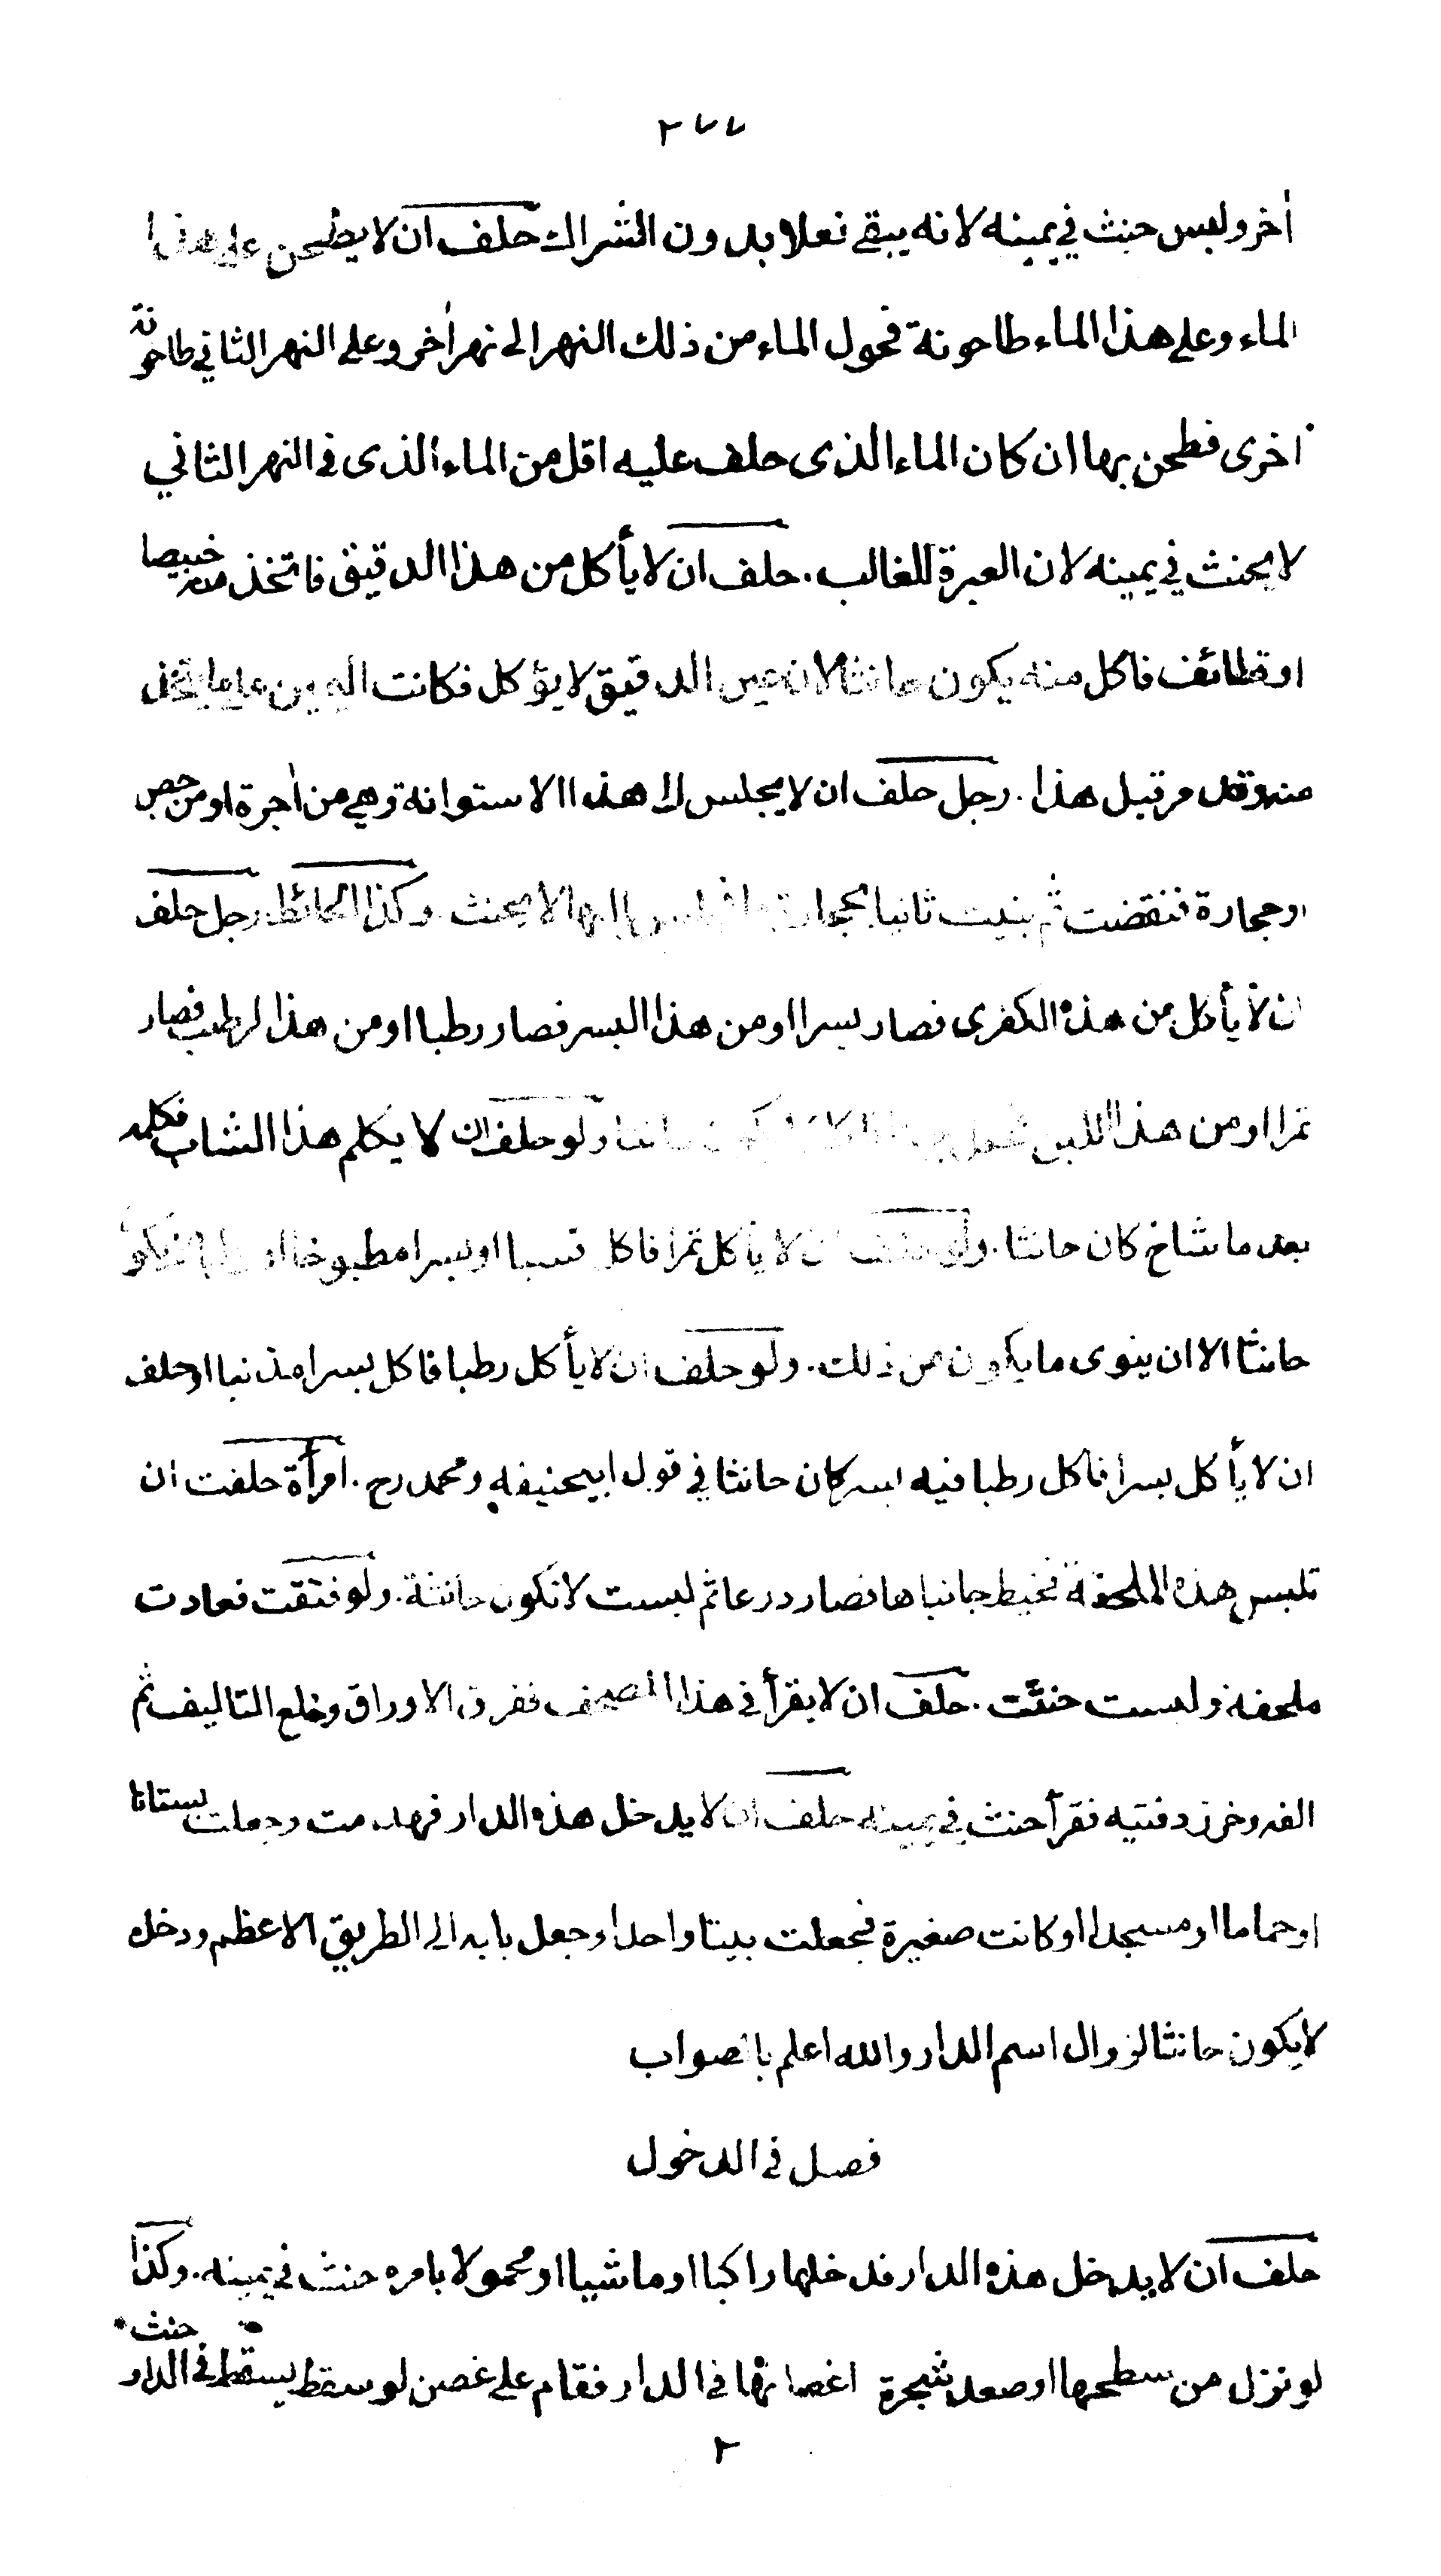 ٢٧٧
أخر ولبس حنث في يمينه لانه يبقى نعلا بدون الشراك حلف ان لا يطحن على هذا
الماء وعلى هذا الماء طاحونة فحول الماء من ذلك النهر الى نهر أخر وعلى النهر الثاني طاحونة
اخرى فطحن بها ان كان الماء الذى حلف عليه اقل من الماء الذى فى النهر الثاني
لا يحنث في يمينه لان العبرة للغالب. حلف ان لا يأكل من هذا الدقيق فاتخذ منه خبيصا
او قطائف فاكل منه يكون حانثا لان عين الدقيق لا يؤكل فكانت اليمين على ما يتخذ
منه وقد مر قبل هذا. رجل حلف ان لا يجلس الى هذه الاستوانة وهي من أجرة او من جص
او حجارة فنقضت ثم بنيت ثانيا بحجارتها فجلس اليها لا يحنث وكذا الحائط رجل حلف
ان لا يأكل من هذه الكفرى فصار بسرا او من هذا البسر فصار رطبا او من هذا الرطب فصار
تمرا او من هذا اللبن ولو حلف ان لا يكلم هذا الشاب فكلمه
بعد ما شاخ كان حانثا. ولو حلف ان لا يأكل تمرا فاكل قسبا او بسرا مطبوخا
حانثا الا ان ينوى ما يكون من ذلك. ولو حلف ان لا يأكل رطبا فاكل بسرا مذنبا او حلف
ان لا يأكل بسرا فاكل رطبا فيه بسر كان حانثا في قول ابيحنيفه ومحمد رح. امرأة حلفت ان
تلبس هذه الملحفة فخيط جانباها فصار درعا ثم لبست لا تكون حانثة. ولو فتقت فعادت
ملحفة ولبست حنثت. حلف ان لا يقرأ في هذا المصحف ففرق الاوراق وخلع التاليف ثم
الفه وخرز دفتيه فقرأ حنث في يمينه حلف ان لا يدخل هذه الدار فهدمت وجعلت بستانا
او حماما او مسجدا او كانت صغيرة فجعلت بيتا واحدا وجعل بابه الى الطريق الاعظم ودخله
لا يكون حانثا لزوال اسم الدار والله اعلم بالصواب
فصل فى الدخول
حلف ان لا يدخل هذه الدار فدخلها راكبا او ماشيا او محمولا بامره حنث في يمينه. وكذا
لو نزل من سطحها او صعد شجرة اغصانها فى الدار فقام على غصن لو سقط يسقط فى الدار حنث
٢